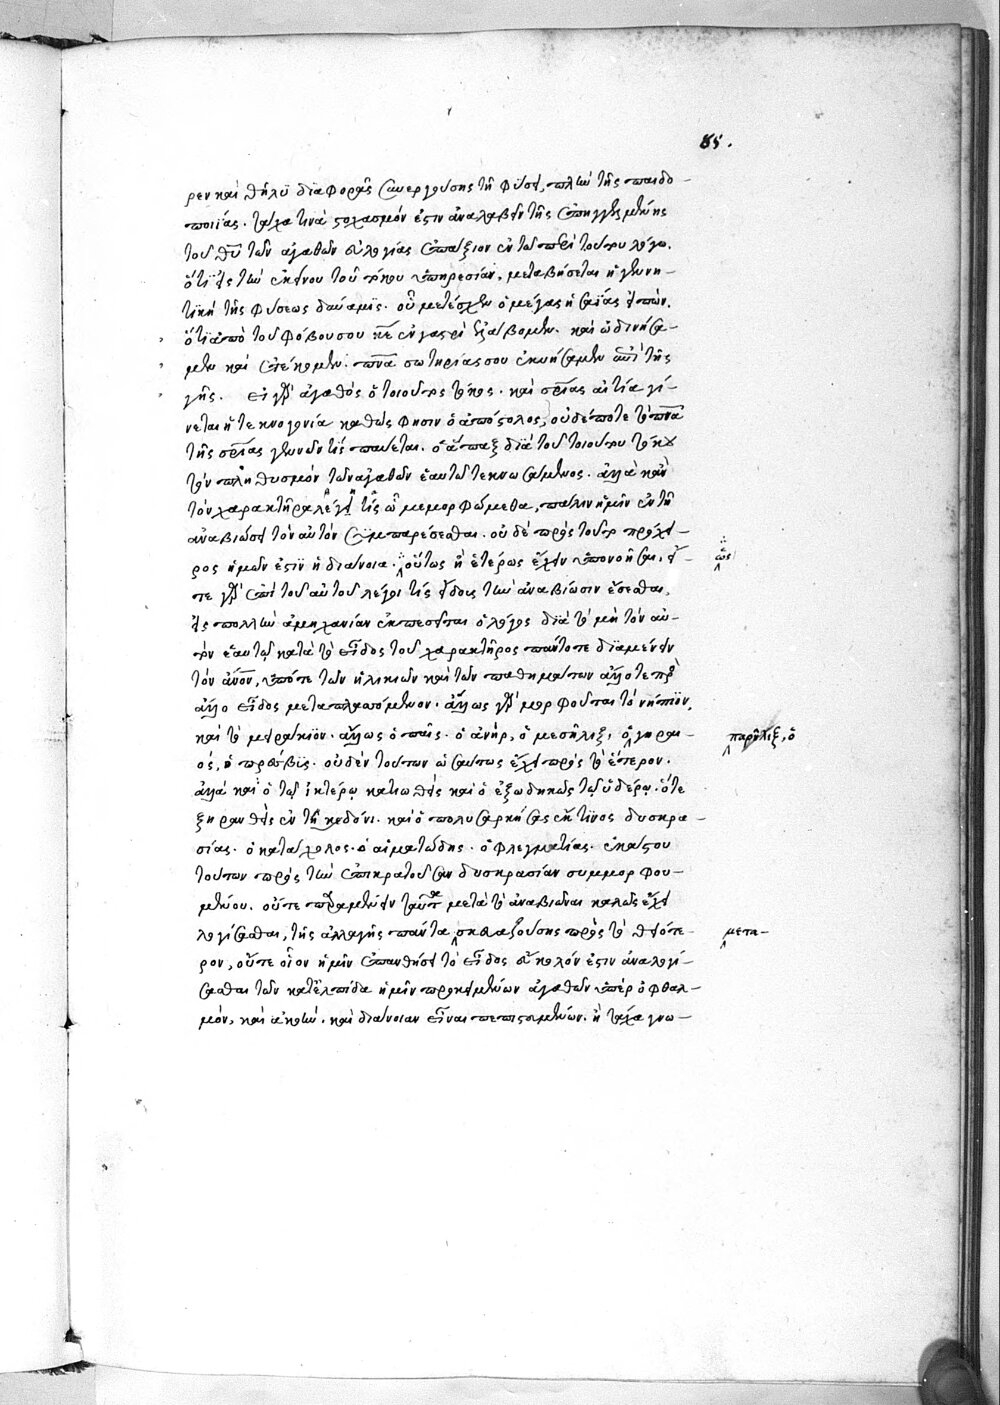 85.
ρεν καὶ θῆλυ διαφορᾶς συνεργούσης τῇ φύσει, πλὴν τῆς παιδο-
ποιΐας. τάχα τινὰ στοχασμόν ἐστιν ἀναλαβεῖν τῆς ἐπηγγελμένης
τοῦ θῦ τῶν ἀγαθῶν εὐλογίας ἐπάξιον ἐν τῷ περὶ τούτου λόγῳ.
ὅτι εἰς τὴν ἐκείνου τοῦ τόκου ὑπηρεσίαν, μεταβήσεται ἡ γεννη-
τικὴ τῆς φύσεως δύναμις. οὗ μετέσχεν ὁ μέγας ἡσαΐας εἰπών.
ὅτι ἀπὸ τοῦ φόβου σου κε ἐν γαστρὶ ἐλάβομεν. καὶ ὠδινήσα-
μεν καὶ ἐτέκομεν. πνα σωτηρίας σου ἐκυήσαμεν ἐπὶ τῆς
γῆς. εἰ γὰρ ἀγαθὸς ὁ τοιοῦτος τόκος. καὶ σρίας αἰτία γί-
νεται ἡ τεκνογονία καθώς φησιν ὁ ἀπόστολος, οὐδέποτε τὸ πνα
τῆς σρίας γεννῶν τίς παύεται. ὁ ἅπαξ διὰ τοῦ τοιούτου τόκου
τὸν πληθυσμὸν τῶν ἀγαθῶν ἑαυτῷ τεκνωσάμενος. ἀλλὰ κἂν
τὸν χαρακτῆρα λέγῃ τίς ᾧ μεμορφώμεθα, πάλιν ἡμῖν ἐν τῇ
ἀναβιώσει τὸν αὐτὸν συμπαρέσεσθαι. οὐδὲ πρὸς τοῦτο πρόχει-
ρος ἡμῶν ἐστιν ἡ διάνοια. οὕτως ἢ ἑτέρως ἔχειν ὑπονοῆσαι, εἴ- ὡς
τε γὰρ ἐπὶ τοῦ αὐτοῦ λέγοι τίς εἴδους τὴν ἀναβίωσιν ἔσεσθαι,
εἰς πολλὴν ἀμηχανίαν ἐκπεσεῖται ὁ λόγος διὰ τὸ μὴ τὸν αὐ-
τὸν ἑαυτῷ κατὰ τὸ εἶδος τοῦ χαρακτῆρος πάντοτε διαμένειν
τὸν ἄνον, ὑπό τε τῶν ἡλικιῶν καὶ τῶν παθημάτων ἄλλοτε πρὸς
ἄλλο εἶδος μεταπλαττόμενον. ἄλλως γὰρ μορφοῦται τὸ νήπιον,
καὶ τὸ μειράκιον. ἄλλως ὁ παῖς. ὁ ἀνήρ, ὁ μεσῆλιξ, ὁ γηραι- παρῆλιξ, ὁ
ός, ὁ πρεσβῦς. οὐδὲν τούτων ὡσαύτως ἔχει πρὸς τὸ ἕτερον.
ἀλλὰ καὶ ὁ τῷ ἰκτέρῳ κατιωθεὶς καὶ ὁ ἐξῳδηκὼς τῷ ὑδέρῳ. ὅτε
ξηρανθεὶς ἐν τηκεδόνι. καὶ ὁ πολυσαρκήσας ἔκ τινος δυσκρα-
σίας. ὁ κατάχολος. ὁ αἱματώδης. ὁ φλεγματίας. ἑκάστου
τούτων πρὸς τὴν ἐπικρατοῦσαν δυσκρασίαν συμμορφου-
μένου. οὔτε παραμένειν ταῦτα μετὰ τὸ ἀναβιῶναι καλῶς ἔχει
λογίσασθαι, τῆς ἀλλαγῆς πάντα σκευαζούσης πρὸς τὸ θειότε- μετα-
ρον, οὔτε οἷον ἡμῖν ἐπανθήσει τὸ εἶδος εὔκολόν ἐστιν ἀναλογί-
σασθαι τῶν κατ' ἐλπίδα ἡμῖν προκειμένων ἀγαθῶν ὑπὲρ ὀφθαλ-
μὸν, καὶ ἀκοὴν. καὶ διάνοιαν εἶναι πεπιστευμένων. ἢ τάχα γνω-